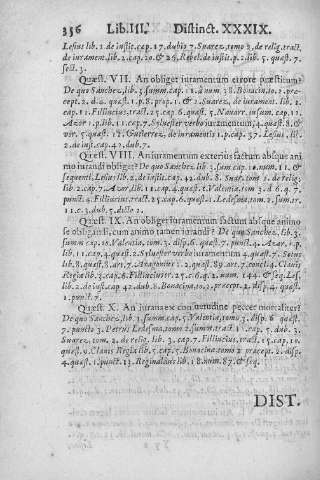 356 Lib. III. Distinct. XXXIX.
Lesius lib. 2. de instit. cap. 17. dubio 7. Suarez, tomo 2. de relig. tract.
de iuramen. lib. 2. cap. 20. & 26. Rebel. de instit. p. 2. lib. 5. quæst. 7.
sect. 3.
Quæst. VII. An obliget iuramentum errore præstitum?
De quo Sanchez, lib. 3. summ. cap. 11. à num. 38. Bonacin. to. 2. præ-
cept. 2. d. 4. quæst. 1. p. 8. prop. 1. & 2. Suarez, de iurament. lib. 2.
cap. 11. Filliucius, tract. 25. cap. 6. quæst. 5. Nauarr. in summ. cap. 12.
Azor 1. p. lib. 11. cap. 7. Syluester verbo iuramentum, 4. quæst. 8. &
vir. 5. quæst. 12. Gutierrez, de iuramentis 1. p. cap. 57. Lesius, lib.
2. de inst. cap. 42. dub. 7.
Quæst. VIII. An iuramentum exterius factum absque ani
mo iurandi obliget? De quo Sanchez lib. 3. sum. cap. 10. num. 11. &
sequenti, Lesius lib. 2. de instit. cap. 42. dub. 8. Suar. tom. 2. de relig.
lib. 2. cap. 7. Azor, lib. 11. cap. 4. quæst. 1. Valentia, tom 3. d. 6. q. 7.
punct. 4. Filliucius, tract. 25. cap. 6. quæst. 1. Ledesma, tom. 2. sum. tr.
11. c. 3. dub. 5. diffic. 2.
Quæst. IX. An obliget iuramentum factum absque animo
se obligandi, cum animo tamen iurandi? De quo Sanchez, lib. 3.
summ cap. 10. Valentia, tom. 3. disp. 6. quæst. 7. punct. 4. Azor, 1. p.
lib. 11. cap. 4. quæst. 2. Syluester verbo iuramentum 4. quæst. 7. Sotus
lib. 8. quæst. 1. art. 7.
Regia lib. 3. cap. 6. Filliucius tr. 25. c. 6. q. 2. num. 144. & seq. Les.
lib. 2. de inst. cap 42. dub. 8. Bonacina, to. 2. præcept. 2. disp. 4. quæst.
1. punct. 7.
Quæst. X. An iurans ex consuetudine peccet mortaliter?
De quo Sanchez, lib. 3. summ. cap. 5. Valentia, tomo 3. disp. 6. quæst.
7. puncto 3. Petrus Ledesma, tomo 2. summ. tract. 11. cap. 5. dub. 3.
Suarez, tom. 2. de relig. lib. 3. cap. 7. Filliucius, tract. 25. cap. 10.
quæst. 9. Clauis Regia lib. 5. cap. 5. Bonacina tomo 2. præcept. 2. disp.
4. quæst. 1. punct. 13. Reginaldus lib. 18. num. 87. & seq.
DIST.